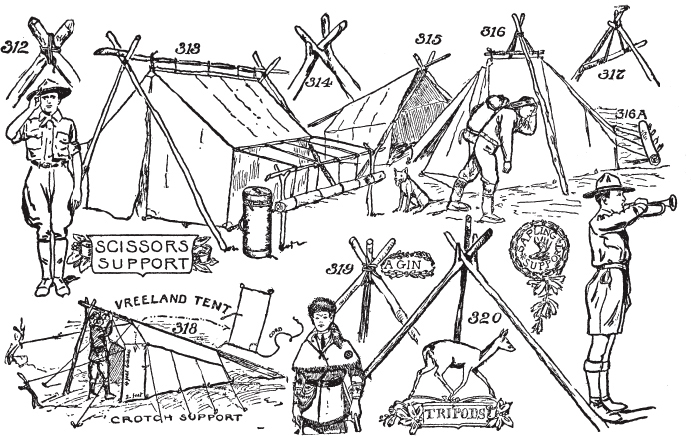 312
313
314
315
316
317
316A
SCISSORS
SUPPORT
SAPLING
SUPPORT
319
A GIN
VREELAND TENT
318
CORD
320
CROTCH SUPPORT
TRIPODS